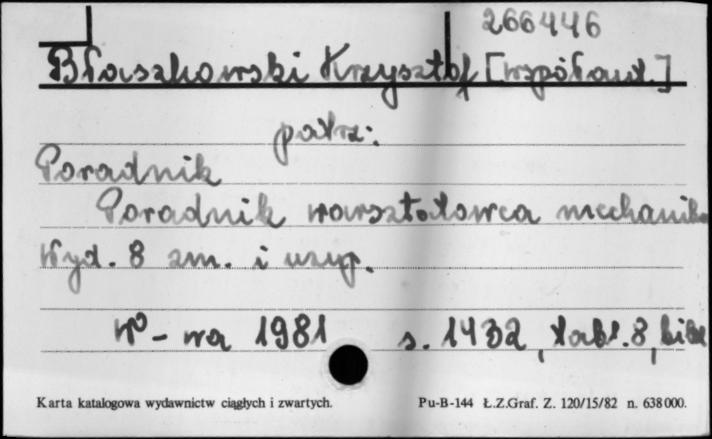 266446
Błaszkowski Krzysztof [współaut.]
patrz:
Poradnik
Poradnik warsztatowca mechanika
Wyd. 8 zm. i uzup.
W-wa 1981 s. 1432, tabl. 8, bibl
Karta katalogowa wydawnictw ciągłych i zwartych. Pu-B-144 Ł.Z.Graf. Z. 120/15/82 n. 638000.